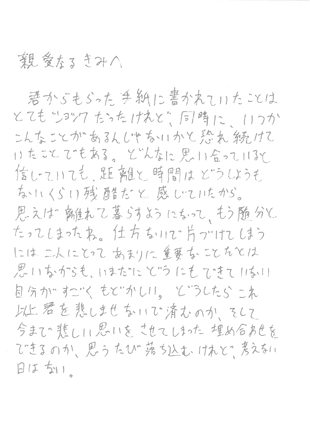 親愛なる きみへ
君からもらった手紙に書かれていたことは
とてもショックだったけれど、同時に、いつか
こんなことがあるんじゃないかと恐れ続けて
いたことでもある。どんなに思い合っていると
信じていても、距離と時間はどうしようも
ないくらい残酷だと感じていたから。
思えば離れて暮らすようになって、もう随分と
たってしまったね。仕方ないで片づけてしまう
には二人にとってあまりに重要なことだとは
思いながらも、いまだにどうにもできていない
自分がすごくもどかしい。どうしたらこれ
以上君を悲しませないで済むのか、そして
今まで悲しい思いをさせてしまった埋め合わせを
できるのか、思うたび落ち込むけれど、考えない
日はない。